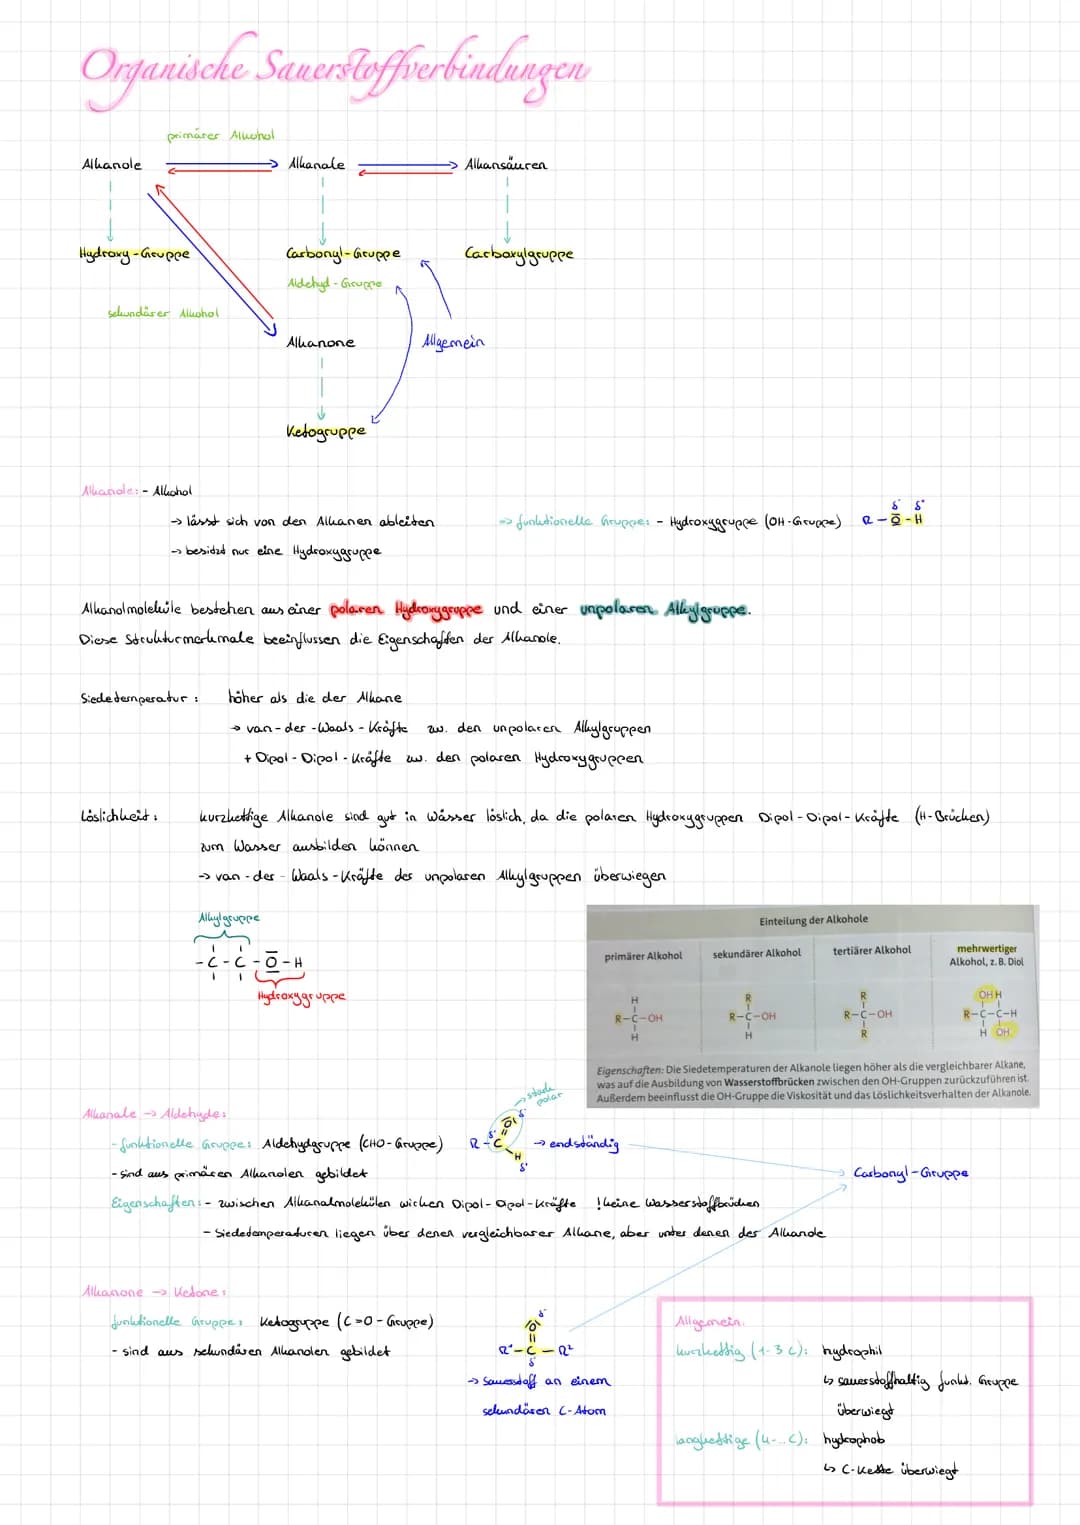 Organische Sauerstoffverbindungen
primärer Alkohol
Alkanole
Alkanale
Alkansäuren
Hydroxy-Gruppe
Carbonyl-Gruppe
Carboxylgruppe
Aldehyd-Gruppe
sekundärer Alkohol
Alkanone
Allgemein
Ketogruppe
Alkanole: - Alkohol
→ lässt sich von den Alkanen ableiten
→ funktionelle Gruppe: - Hydroxygruppe (OH-Gruppe)
δ⁻ δ⁺
R - O - H
→ besitzt nur eine Hydroxygruppe
Alkanolmoleküle bestehen aus einer polaren Hydroxygruppe und einer unpolaren Alkylgruppe.
Diese Strukturmerkmale beeinflussen die Eigenschaften der Alkanole.
Siedetemperatur: höher als die der Alkane
→ van-der-Waals-Kräfte zw. den unpolaren Alkylgruppen
+ Dipol-Dipol-Kräfte zw. den polaren Hydroxygruppen
Löslichkeit: kurzkettige Alkanole sind gut in Wasser löslich, da die polaren Hydroxygruppen Dipol-Dipol-Kräfte (H-Brücken)
zum Wasser ausbilden können
→ van-der-Waals-Kräfte der unpolaren Alkylgruppen überwiegen
Alkylgruppe
- C - C - O - H
Hydroxygruppe
Einteilung der Alkohole
primärer Alkohol
sekundärer Alkohol
tertiärer Alkohol
mehrwertiger
Alkohol, z. B. Diol
H
R-C-OH
H
R
R-C-OH
H
R
R-C-OH
R
OH H
R-C-C-H
H OH
Eigenschaften: Die Siedetemperaturen der Alkanole liegen höher als die vergleichbarer Alkane,
was auf die Ausbildung von Wasserstoffbrücken zwischen den OH-Gruppen zurückzuführen ist.
Außerdem beeinflusst die OH-Gruppe die Viskosität und das Löslichkeitsverhalten der Alkanole.
Alkanale → Aldehyde:
→ stark
polar
- funktionelle Gruppe: Aldehydgruppe (CHO-Gruppe)
R - C
O
H
→ endständig
- sind aus primären Alkanolen gebildet
Carbonyl-Gruppe
Eigenschaften: - zwischen Alkanalmolekülen wirken Dipol-Dipol-Kräfte ! keine Wasserstoffbrücken
- Siedetemperaturen liegen über denen vergleichbarer Alkane, aber unter denen der Alkanole
Alkanone → Ketone:
funktionelle Gruppe: Ketogruppe (C=O-Gruppe)
- sind aus sekundären Alkanolen gebildet
δ⁻
O
R¹ - C - R²
δ⁺
→ Sauerstoff an einem
sekundären C-Atom
Allgemein:
kurzkettig (1-3 C): hydrophil
↳ sauerstoffhaltig funkt. Gruppe
überwiegt
langkettige (4-... C): hydrophob
↳ C-Kette überwiegt